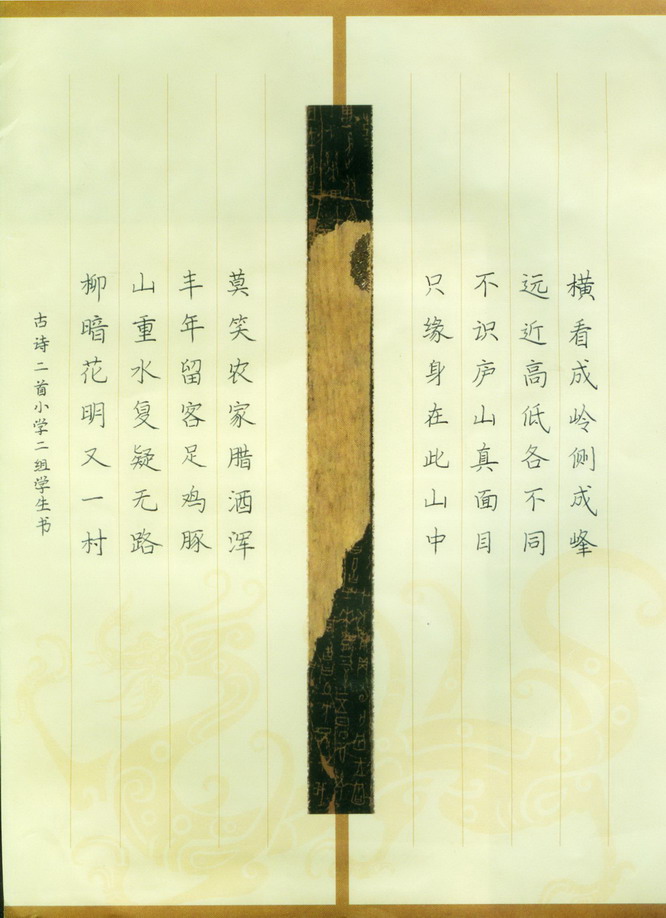 横看成岭侧成峰
远近高低各不同
不识庐山真面目
只缘身在此山中
莫笑农家腊酒浑
丰年留客足鸡豚
山重水复疑无路
柳暗花明又一村
古诗二首小学二组学生书